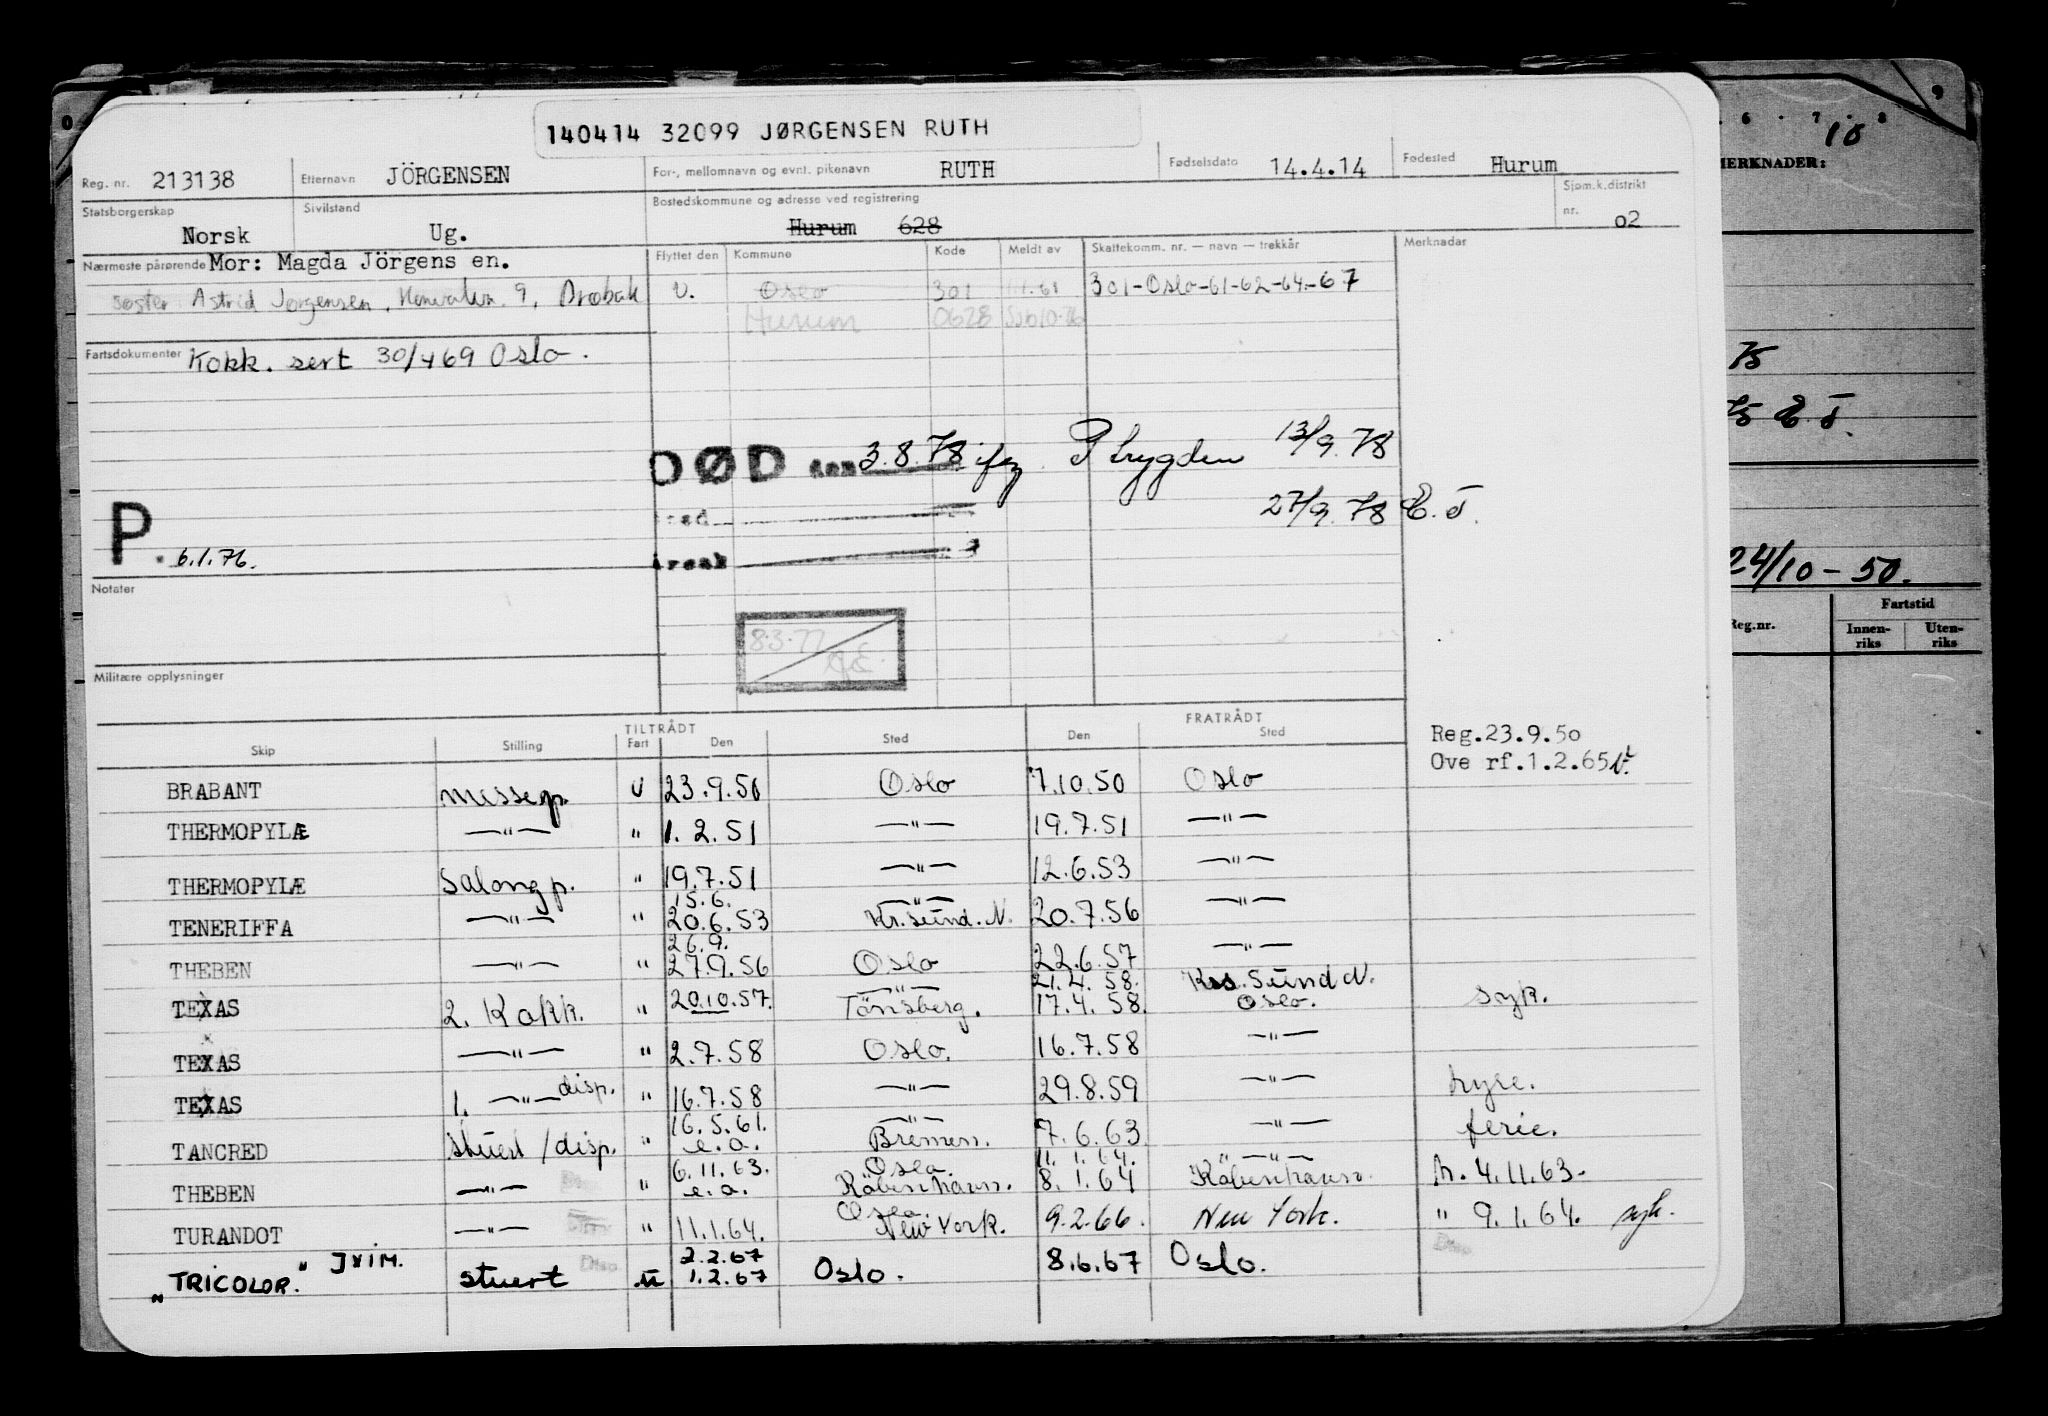 140414 32099 JØRGENSEN RUTH
Reg. nr. 213138 Etternavn JÖRGENSEN For-, mellomnavn og evnt. pikenavn RUTH Fødselsdato 14.4.14 Fødested Hurum
Statsborgerskap Norsk Sivilstand Ug. Bostedskommune og adresse ved registrering Hurum 628 Sjøm.k.distrikt nr. 02
Nærmeste pårørende Mor: Magda Jörgens en. Flyttet den Kommune Kode Meldt av Skattekomm. nr. — navn — trekkår Merknader
søster Astrid Jørgensen, 9, Drøbak U. Oslo 301 1.1.61 301-Oslo-61-62-64-67
Hurum 0628
Fartsdokumenter Kokk. sert 30/469 Oslo.
DØD den 3.8.78 iføg P trygden 13/9.78
sted 27/9.78 E.T.
årsak
P. 6.1.76.
Notater
8.3.77
Militære opplysninger
TILTRÅDT FRATRÅDT
Skip Stilling Fart Den Sted Den Sted
Reg.23.9.50
Ove rf.1.2.65
BRABANT messep. U 23.9.50 Oslo 7.10.50 Oslo
THERMOPYLÆ —"— " 1.2.51 —"— 19.7.51 —"—
THERMOPYLÆ Salongp. " 19.7.51 —"— 12.6.53 —"—
15.6. —"—
TENERIFFA —"— " 20.6.53 Kr.sund.N. 20.7.56 —"—
26.9.
THEBEN —"— " 27.9.56 Oslo 22.6.57 —"—
—"— 21.4.58. Krs.Sund N.
TEXAS 2. Kokk. " 20.10.57. Tönsberg. 17.4.58. Oslo. syk.
TEXAS —"— " 2.7.58 Oslo. 16.7.58 —"—
TEXAS 1. —"— disp. " 16.7.58 —"— 29.8.59 —"— hyre.
16.5.61. —"—
TANCRED stuert/disp. " e.o. Bremen. 7.6.63 —"— ferie.
6.11.63. Oslo. 11.1.64. "—"—
THEBEN —"— " e.o. Köbenhavn. 8.1.64 Köbenhavn. h. 4.11.63.
Oslo.
TURANDOT —"— " 11.1.64. New York. 9.2.66. New York. " 9.1.64. syk.
2.2.67
"TRICOLOR." JXIM. stuert u 1.2.67 Oslo. 8.6.67 Oslo.
Disp
0 6 7 8 9
10
MERKNADER:
75
75 E.T.
24/10-50.
Reg.nr. Fartstid
Innenriks Utenriks